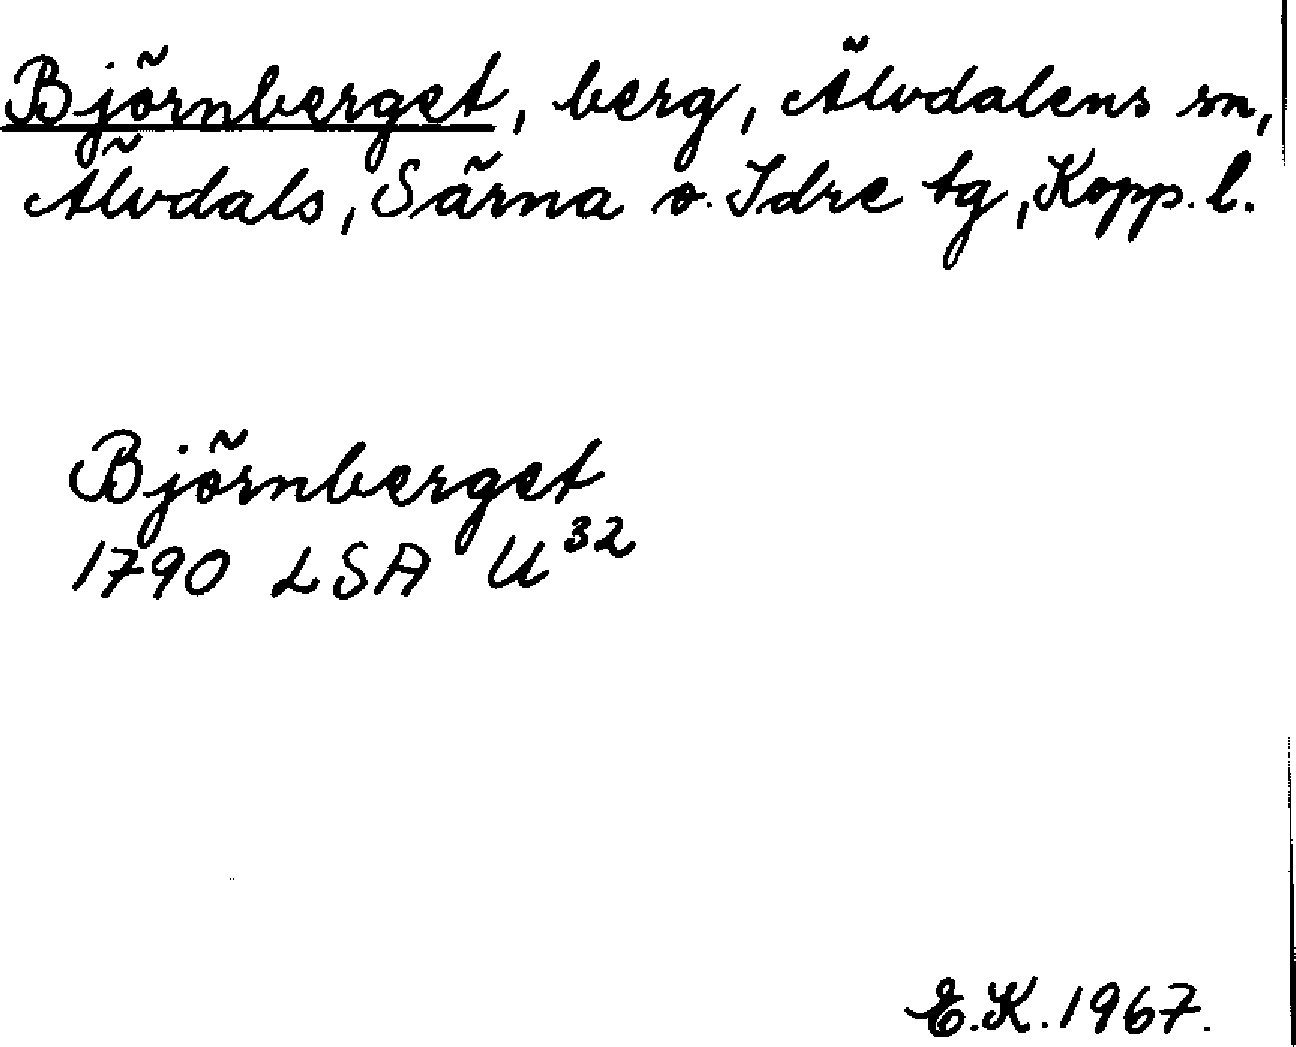 Björnberget, berg, Älvdalens sn,
Älvdals, Särna o. Idre tg, Kopp. l.
Björnberget
1790 LSA U³²
E.K. 1967.